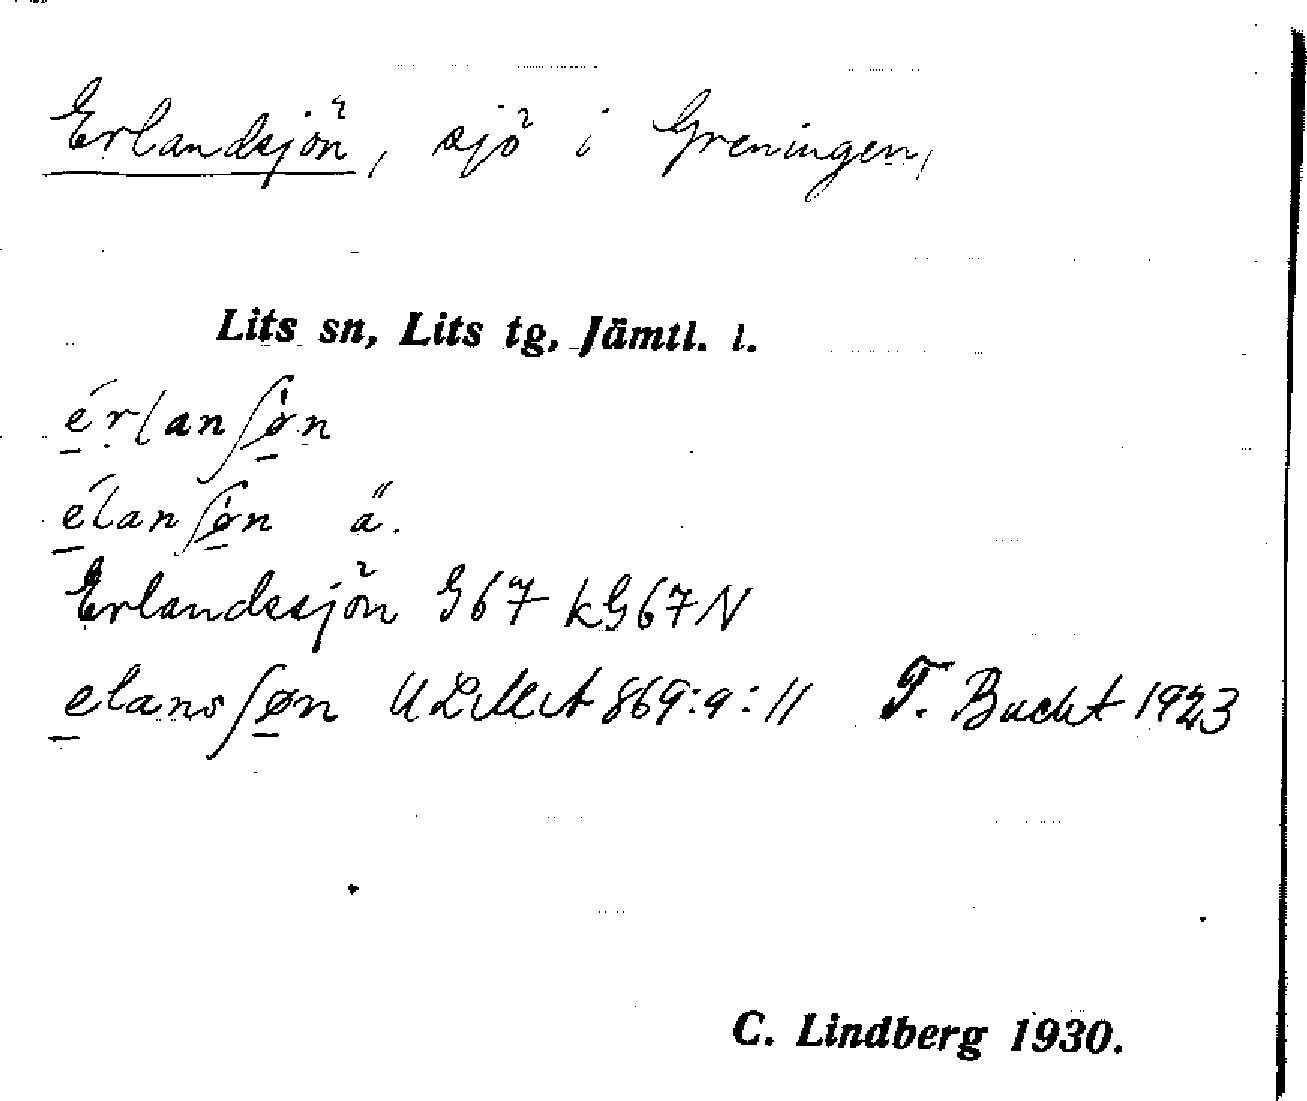 Erlandsjön, sjö i Greningen,
Lits sn, Lits tg, Jämtl. l.
érlanʃøn
élanʃøn ä.
Erlandssjön G67 kG67N
elansʃøn ULMA 869:9:11 T. Bucht 1923
C. Lindberg 1930.